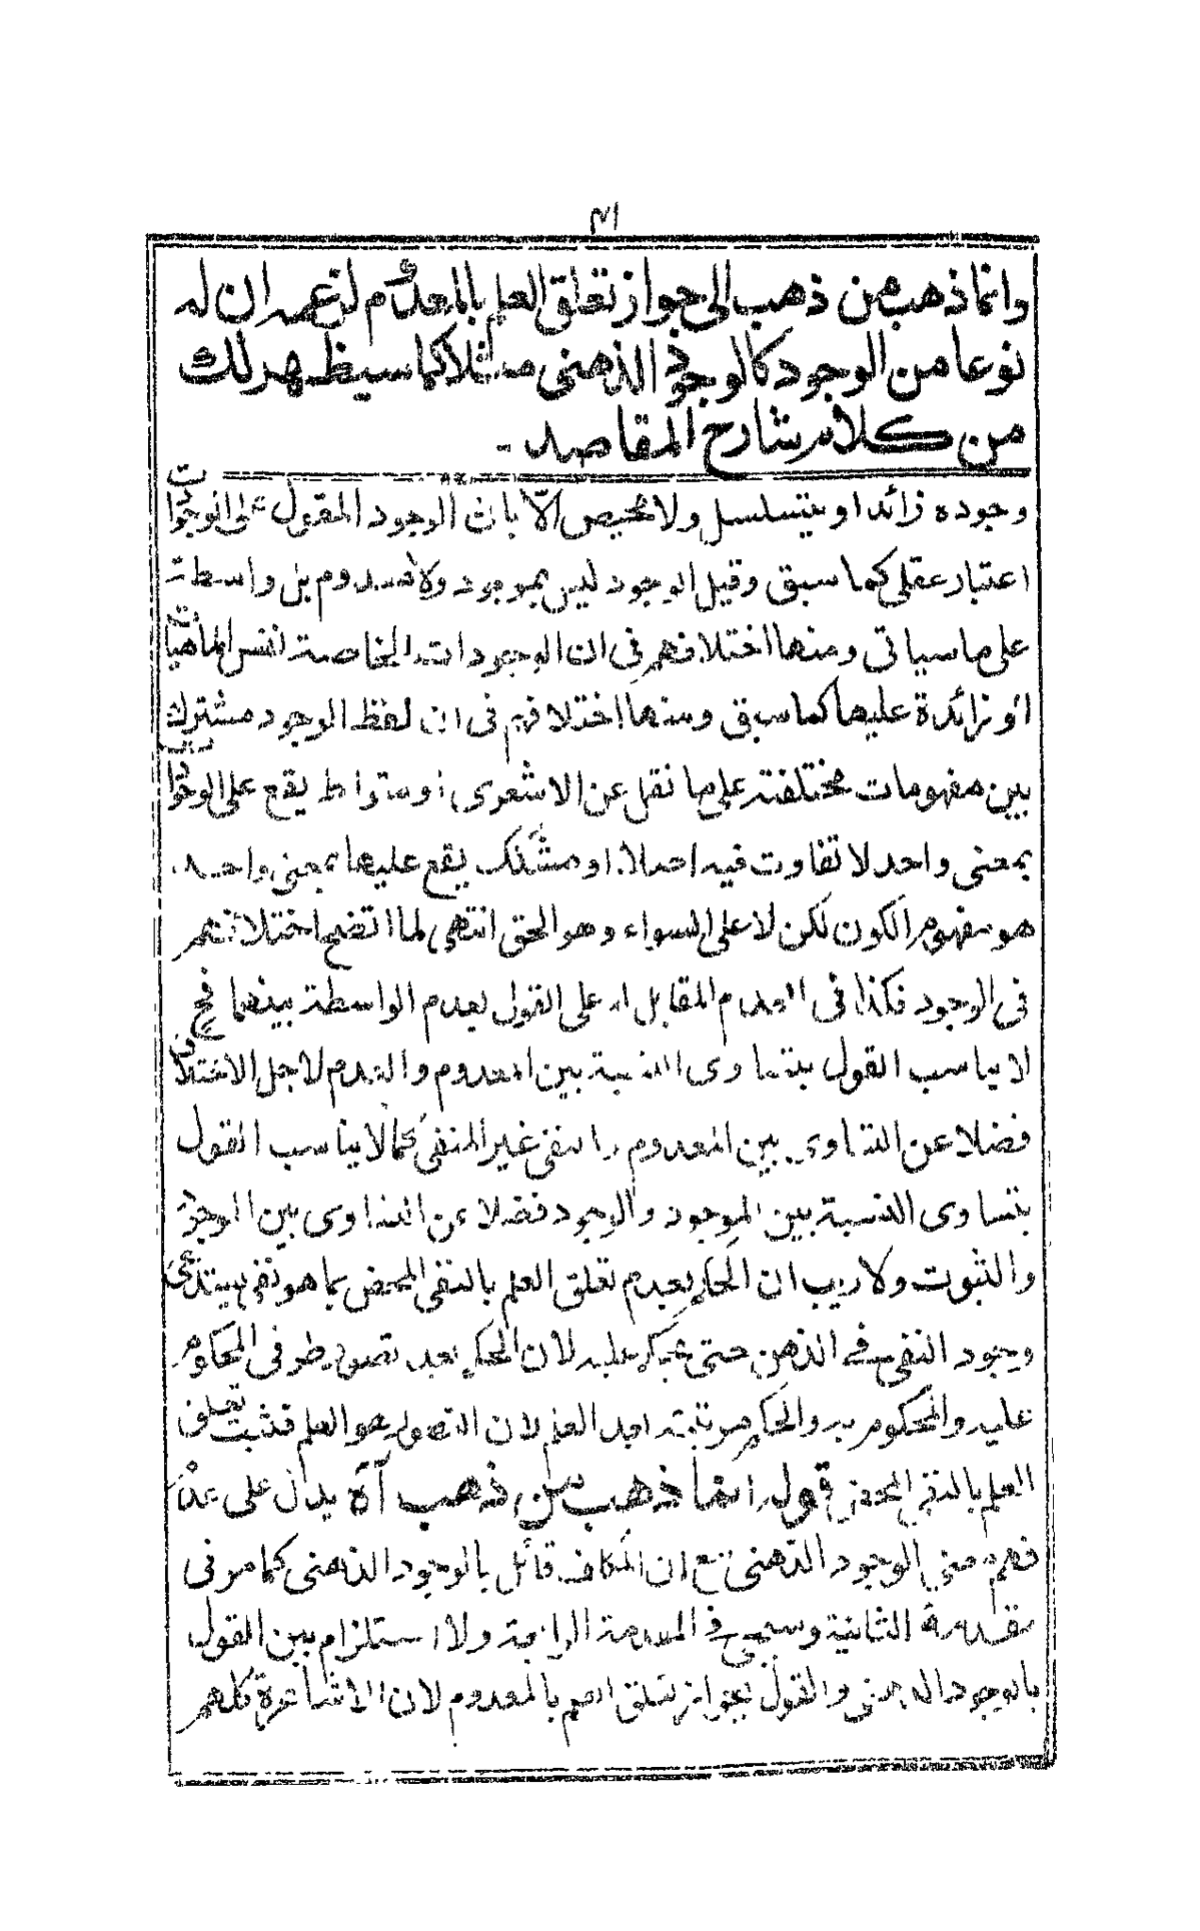 ٣١
وانما ذهب من ذهب الى جواز تعلق العلم بالمعدوم لزعمه ان له
نوعا من الوجود كالوجود الذهنى مثلا كما سيظهر لك
من كلام شارح المقاصد -
وجوده زائد او يتسلسل ولا محيص الّا بان الوجود المقول على الوجودات
اعتبار عقلى كما سبق وقيل الوجود ليس بموجود ولا معدوم بل واسطة
على ما سياتى ومنها اختلافهم فى ان الوجودات الخاصة نفس الماهيات
او زائدة عليها كما سبق ومنها اختلافهم فى ان لفظ الوجود مشترك
بين مفهومات مختلفة على ما نقل عن الاشعرى او متواط يقع على الوجودات
بمعنى واحد لا تفاوت فيه اصلا او مشكك يقع عليها بمعنى واحد
هو مفهوم الكون لكن لا على السواء وهو الحق انتهى لما اتضح اختلافهم
فى الوجود فكذا فى العدم المقابل له على القول بعدم الواسطة بينهما فح
لا يناسب القول بتساوى النسبة بين المعدوم والعدم لاجل الاختلاف
فضلا عن التساوى بين المعدوم والنفى غير المنفى كما لا يناسب القول
بتساوى النسبة بين الموجود والوجود فضلا عن التساوى بين الوجود
والثبوت ولا ريب ان الحكم بعدم تعلق العلم بالنفى المحض بما هو نفى يستدعى
وجود النفى فى الذهن حتى يحكم عليه لان الحكم بعد تصور طرفى المحكوم
عليه والمحكوم به والحكم مرتبته بعد العلم لان التصور هو العلم فثبت تعلق
العلم بالنفى المحض قوله انما ذهب من ذهب آه يدل على عدم
فهم معنى الوجود الذهنى مع ان قائل بالوجود الذهنى كما مر فى
مقدمة الثانية وسيجئ فى المقدمة الرابعة ولا استلزام بين القول
بالوجود الذهنى والقول بجواز تعلق العلم بالمعدوم لان الاشاعرة كلهم